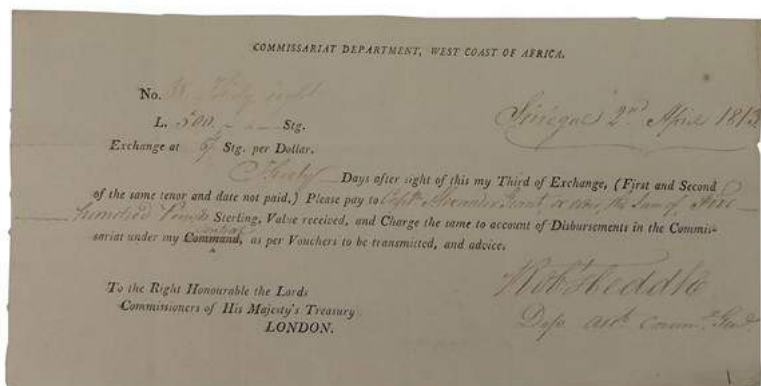 COMMISSARIAT DEPARTMENT, WEST COAST OF AFRICA.
No. 38 Thirty eight
L. 500 - - Stg.
Senegal 2nd April 1813
Exchange at 6/ Stg. per Dollar.
Thirty Days after sight of this my Third of Exchange, (First and Second
of the same tenor and date not paid,) Please pay to Captn Alexander Grant, or order, the Sum of Five
hundred Pounds Sterling, Value received, and Charge the same to account of Disbursements in the Commis-
sariat under my Command, as per Vouchers to be transmitted, and advice.
Robt Heddle
To the Right Honourable the Lords
Commissioners of His Majesty's Treasury
Dep. Asst. Commy. Genl.
LONDON.